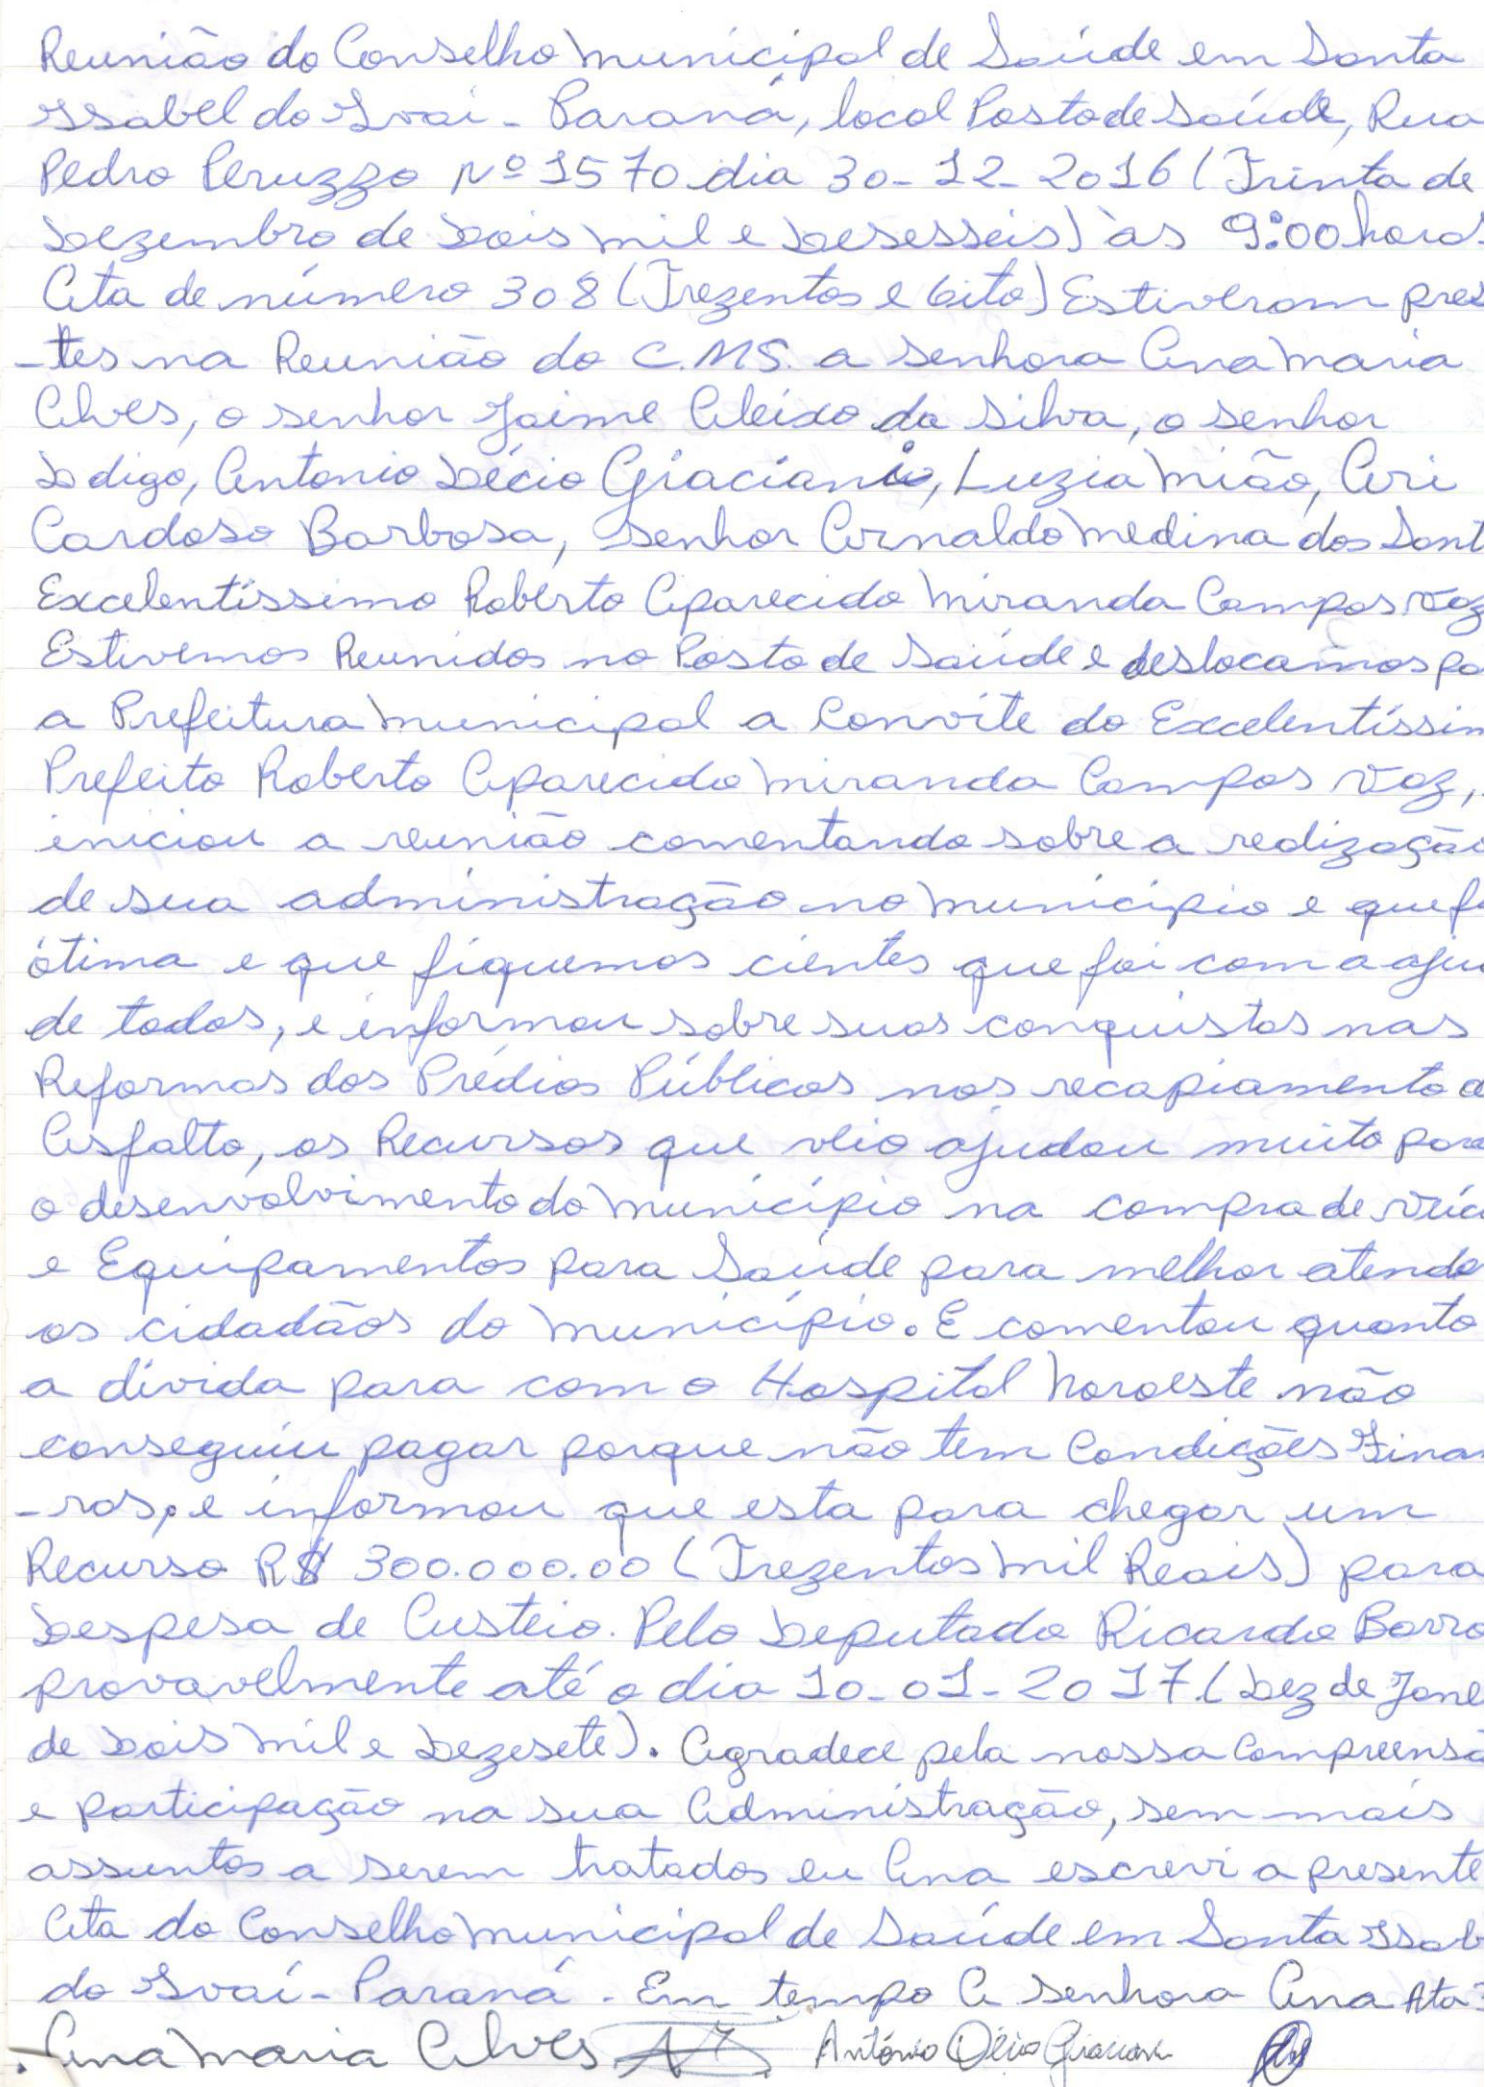 Reunião do Conselho Municipal de Saúde em Santa
Issabel do Ivai - Paraná, local Posto de Saúde, Rua
Pedro Peruzzo Nº 1570 dia 30-12-2016 (Trinta de
Dezembro de Dois Mil e Desesseis) às 9:00 horas
Ata de número 308 (Trezentos e Oito) Estiveram pres
-tes na Reunião do C.M.S. a senhora Ana Maria
Alves, o senhor Jaime Aleixo da Silva, o senhor
Digo, Antonio Décio Graciani, Luzia Mião, Ari
Cardoso Barbosa, Senhor Arnaldo Medina dos Sant
Excelentíssimo Roberto Aparecido Miranda Campos Vaz
Estivemos Reunidos no Posto de Saúde e deslocamos pa
a Prefeitura Municipal a Convite do Excelentíssim
Prefeito Roberto Aparecido Miranda Campos Vaz,
iniciou a reunião comentando sobre a realização
de sua administração no Município e que f
ótima e que fiquemos cientes que foi com a aju
de todos, e informou sobre suas conquistas nas
Reformas dos Prédios Públicos nos recapiamento d
Asfalto, os Recursos que veio ajudou muito para
o desenvolvimento do Município na compra de veíc
e Equipamentos para Saúde para melhor atende
os cidadãos do Município. E comentou quanto
a dívida para com o Hospital Noroeste não
conseguiu pagar porque não tem Condições Finan
-ras, e informou que esta para chegar um
Recurso R$ 300.000.00 (Trezentos Mil Reais) para
Despesa de Custeio. Pelo Deputado Ricardo Barro
provavelmente até o dia 10-01-2017. (Dez de Jane
de Dois Mil e Dezesete). Agradece pela nossa Compreensã
e participação na sua Administração, sem mais
assuntos a serem tratados eu Ana escrevi a presente
Ata do Conselho Municipal de Saúde em Santa Issab
do Ivaí - Paraná. Em tempo A Senhora Ana Ata
Ana Maria Alves Antônio Décio Graciani